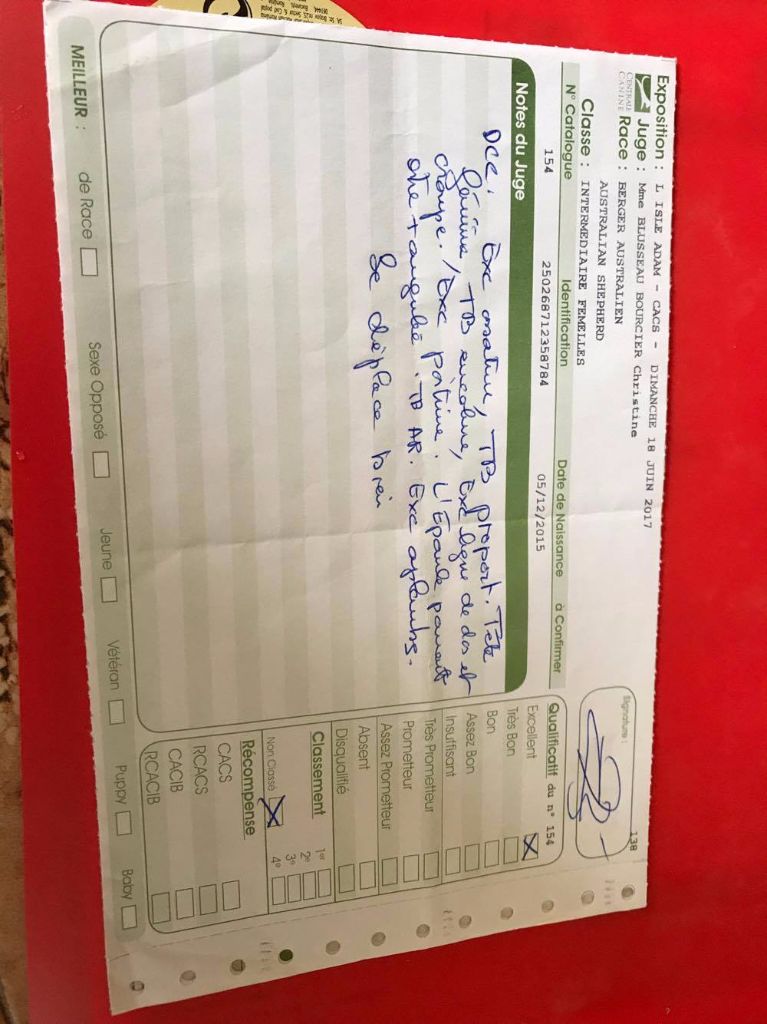 Exposition : L ISLE ADAM - CACS - DIMANCHE 18 JUIN 2017
CENTRALE CANINE
Juge : Mme BLUSSEAU BOURCIER Christine
Race : BERGER AUSTRALIEN
AUSTRALIAN SHEPHERD
Classe : INTERMEDIAIRE FEMELLES
138
Signature :
N° Catalogue Identification Date de Naissance à Confirmer
154 250268712358784 05/12/2015
Notes du Juge
DCC. Exc ossature, TB proport. Tête
féminine TB encolure, Exc ligne de dos et
croupe. / Exc poitrine. L'Epaule pourrait
être + angulée. TB AR. Exc aplombs.
Se déplace bien
Qualificatif du n° 154
Excellent
Très Bon
Bon
Assez Bon
Insuffisant
Très Prometteur
Prometteur
Assez Prometteur
Absent
Disqualifié
Classement 1er
2e
3e
Non Classé 4e
Récompense
CACS
RCACS
CACIB
RCACIB
MEILLEUR : de Race Sexe Opposé Jeune Vétéran Puppy Baby